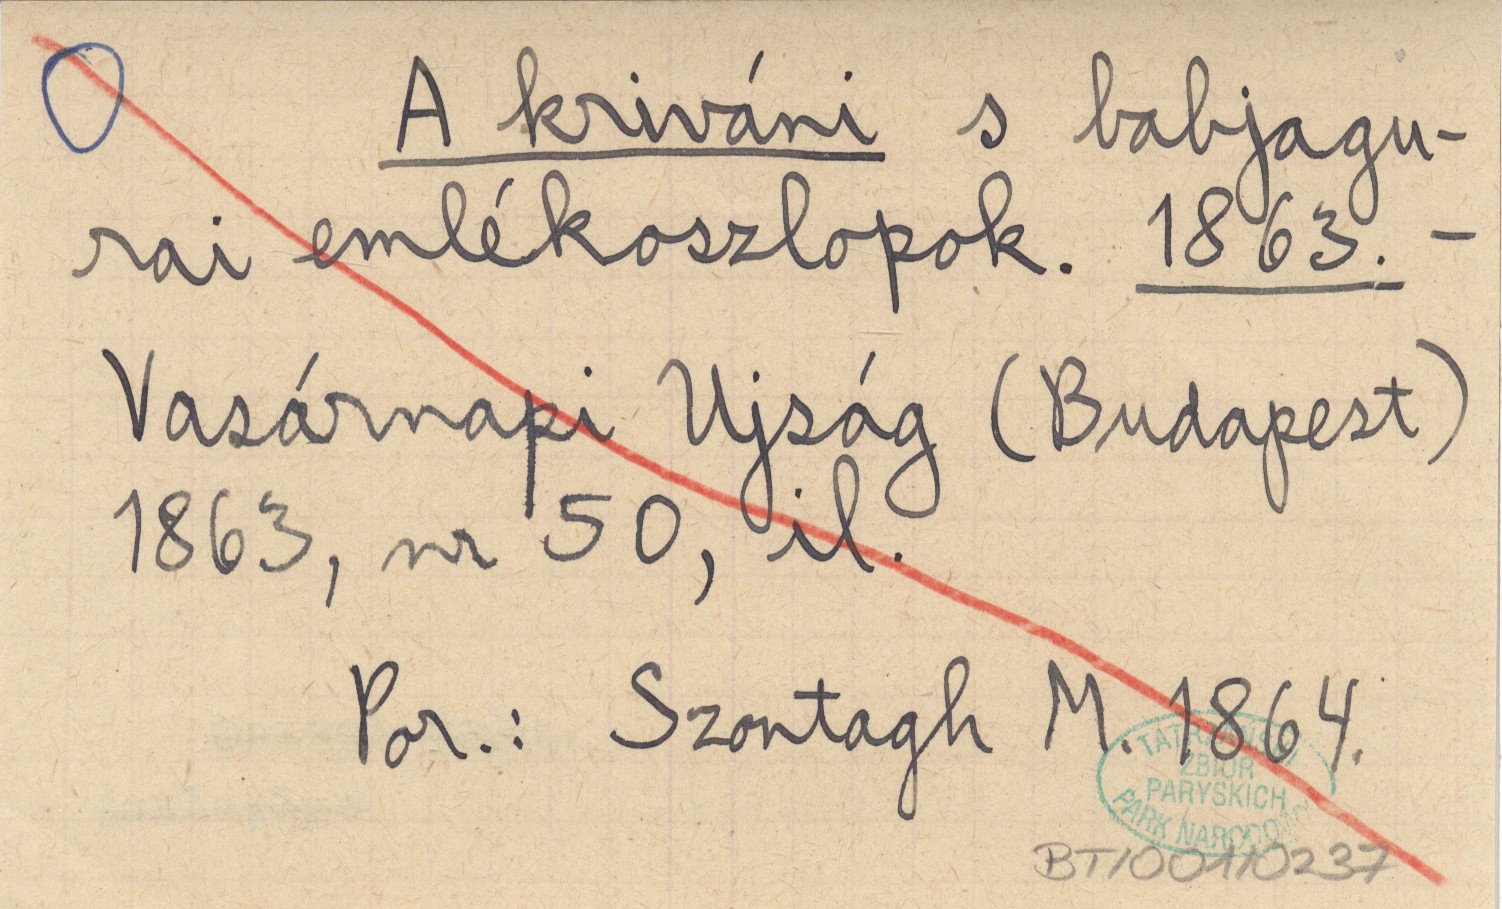 A kriváni s babjagu-
rai emlékoszlopok. 1863. -
Vasárnapi Ujság (Budapest)
1863, nr 50, il.
Por.: Szontagh M. 1864.
TATRZAŃSKI
ZBIÓR
PARYSKICH
PARK NARODOWY
BT/001/0237